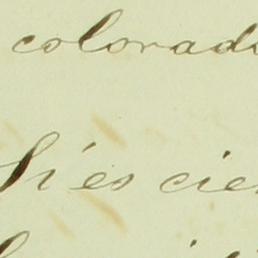 colorado
Si es cier